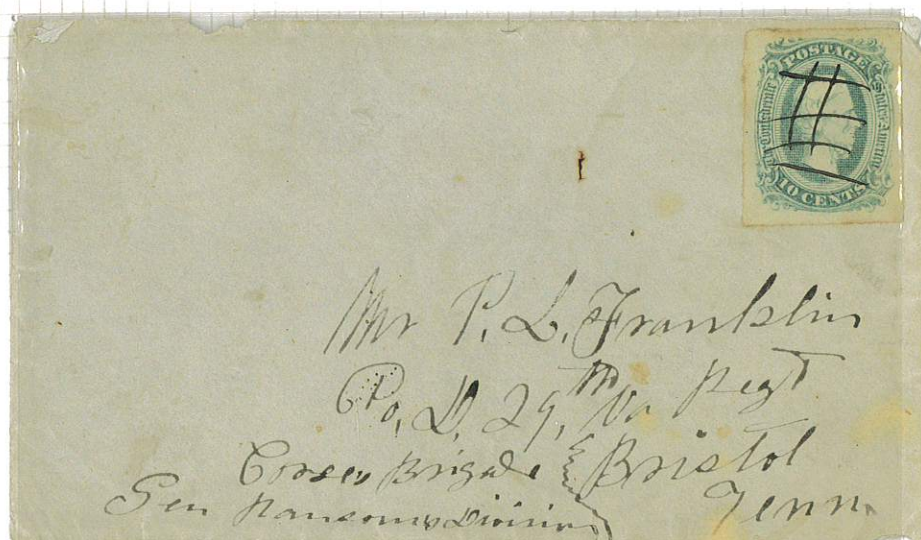 POSTAGE
The Confederate States of America
10 CENTS
Mr P. L. Franklin
Co, D, 29th Va Regt
Corses Brigade Bristol
Gen Ransoms Division Tenn